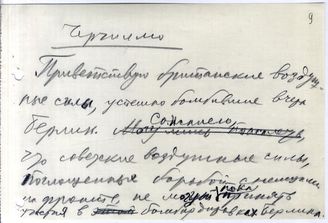 9
Черчиллю
Приветствую британские воздуш-
ные силы, успешно бомбившие вчера
Берлин. Сожалею,
что советские воздушные силы,
поглощенные борьбой с немцами
на фронте, не могут пока принять
участия в бомбардировках Берлина.